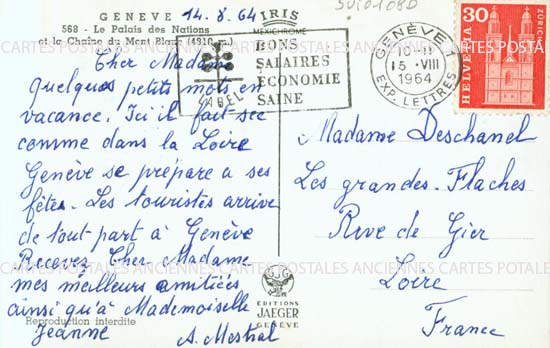 GENÈVE
14.8.64
IRIS
MEXICHROME
SUI0108D
568 - Le Palais des Nations
et la Chaîne du Mont Blanc (4810 m.)
Cher Madame
quelques petits mots en
vacance. Ici il fait sec
comme dans la Loire
Genève se prépare a ses
fêtes. Les touristes arrive
de tout part à Genève
Recevez Cher Madame
mes meilleurs amitiées
ainsi qu'à Mademoiselle
Jeanne
A. Mestral
Reproduction interdite
LABEL
BONS
SALAIRES
ECONOMIE
SAINE
GENÈVE
15.VIII
1964
EXP. LETTRES
30
HELVETIA
ZÜRICH
Madame Deschanel
Les grandes-Flaches
Rive de Gier
Loire
France
EDITIONS
JAEGER
GENÈVE
CARTES POSTALES ANCIENNES CARTES POSTALES ANCIENNES CARTES POSTALES